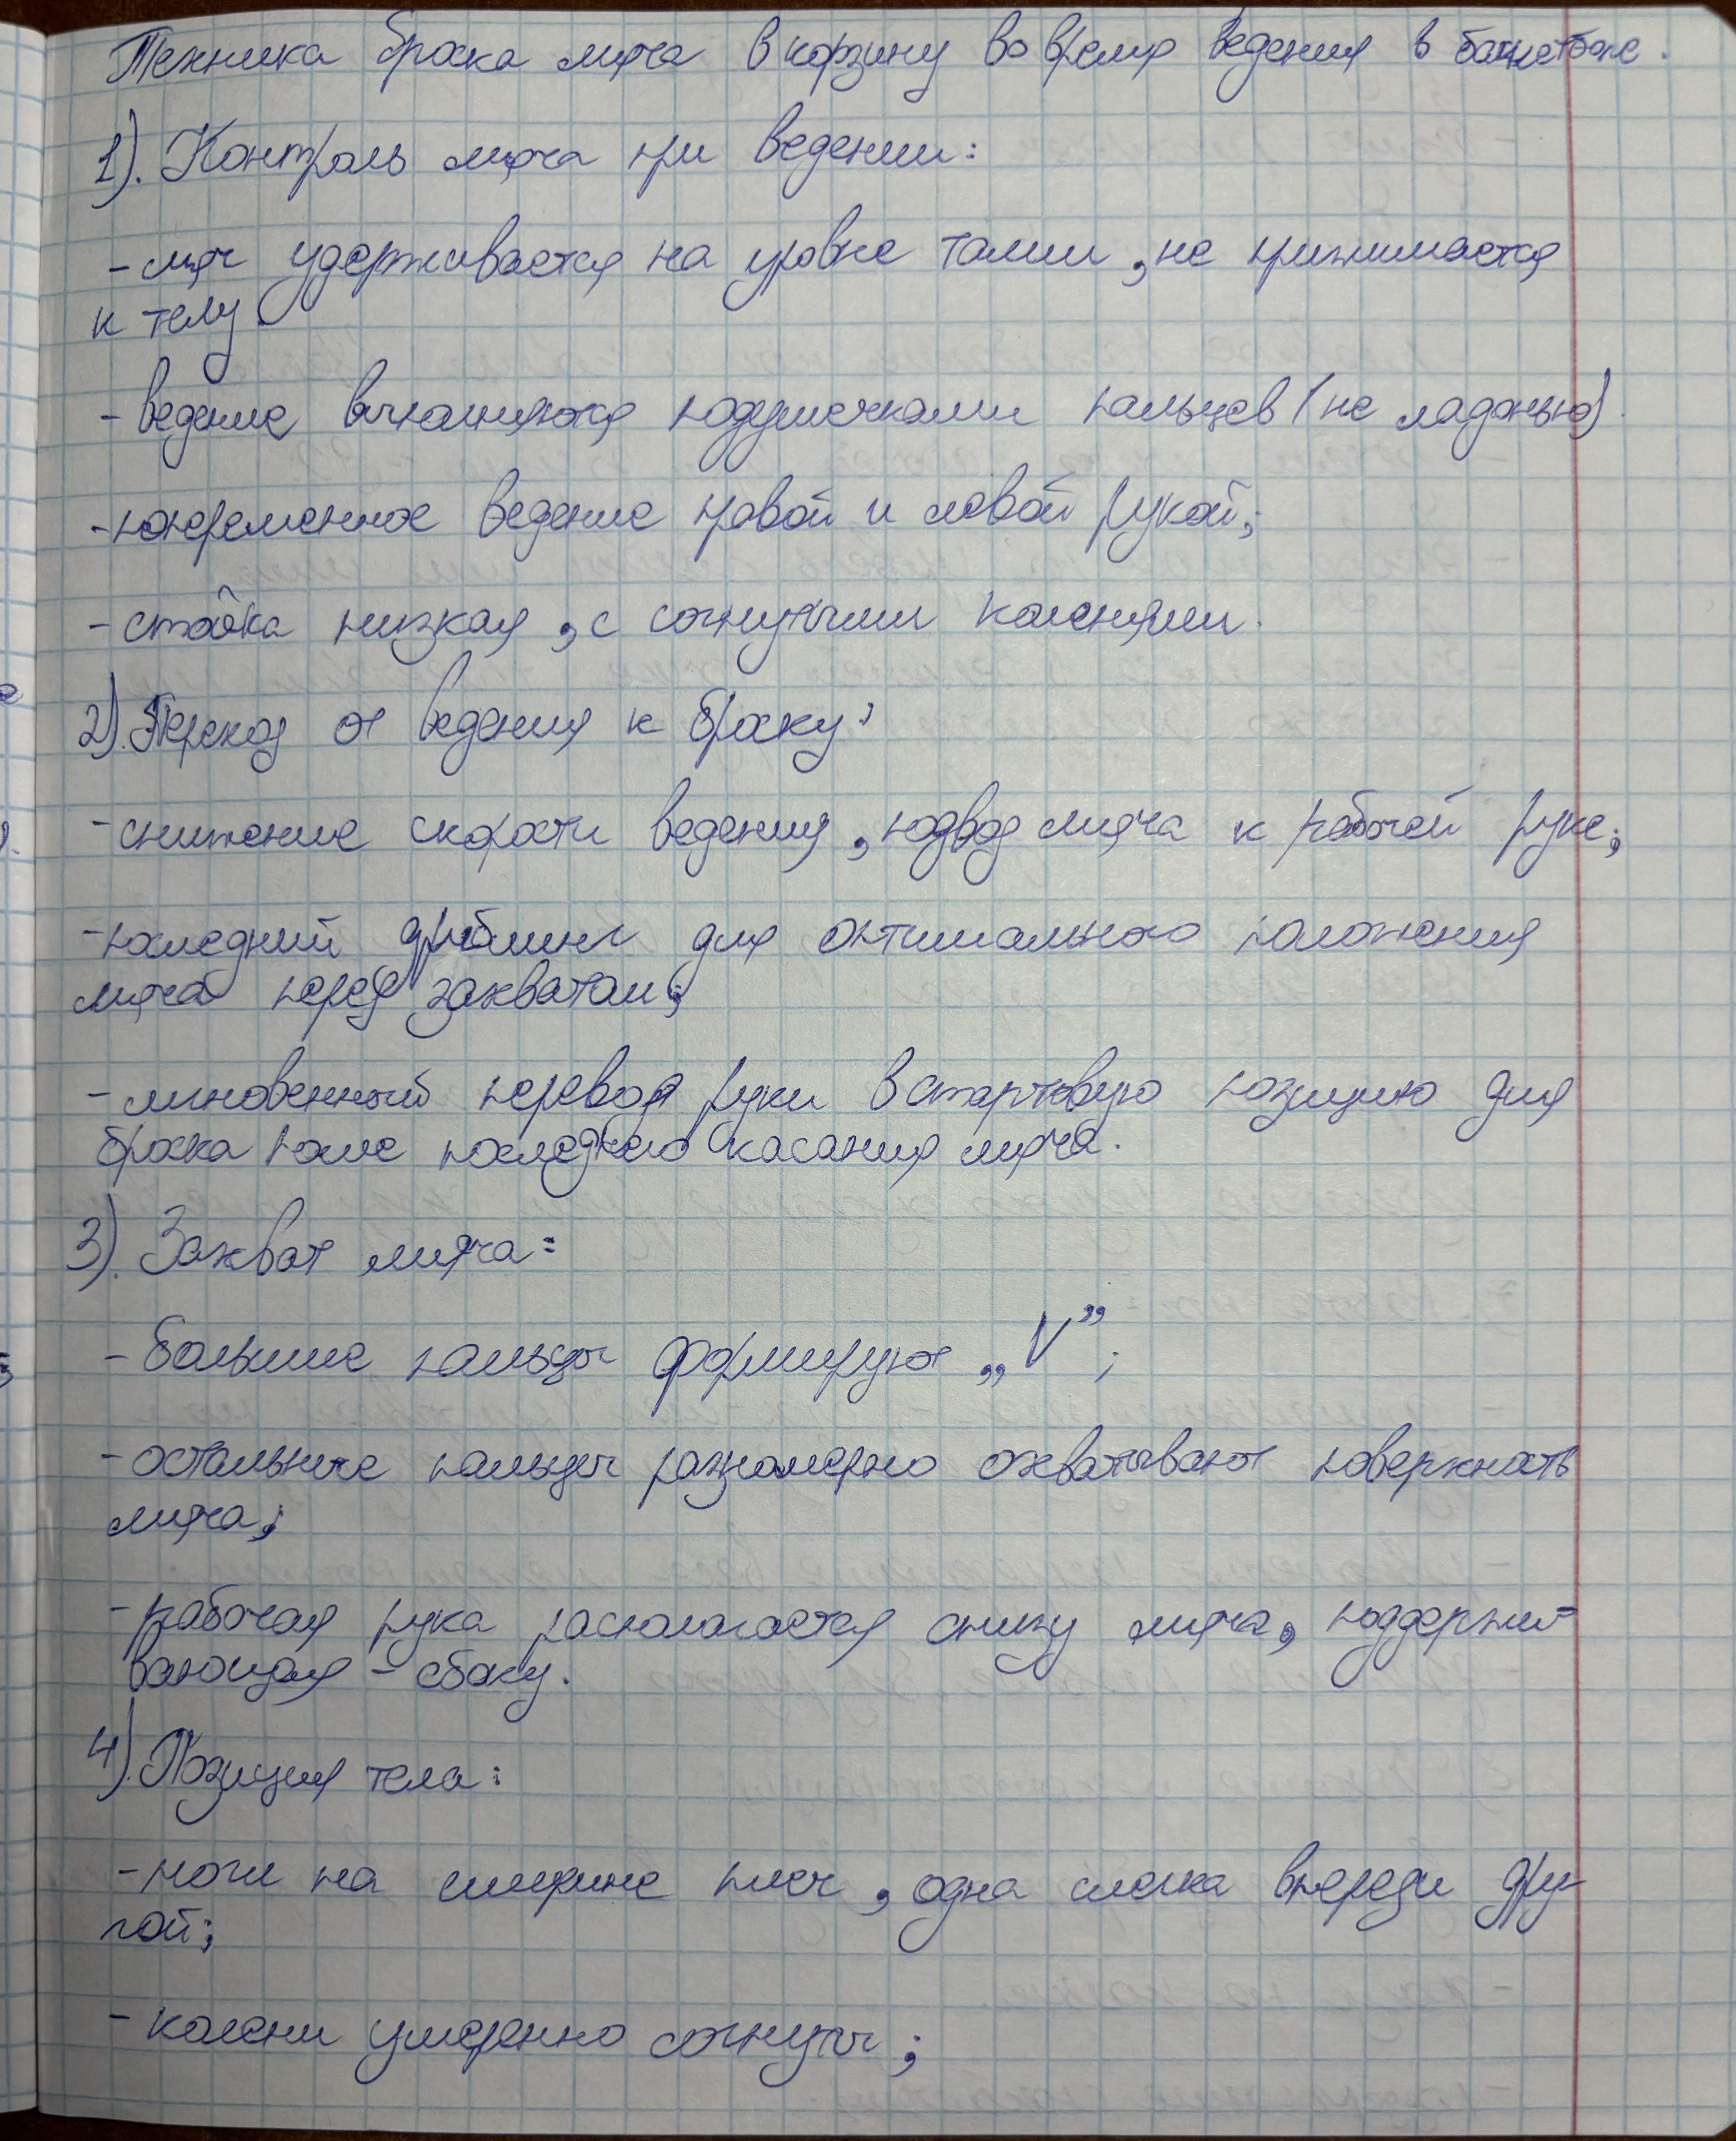 Техника броска мяча в корзину во время ведения в баскетболе.
1). Контроль мяча при ведении:
- мяч удерживается на уровне талии, не прижимается
к телу.
- ведение выполняются подушечками пальцев (не ладонью).
- попеременное ведение правой и левой рукой;
- стойка низкая, с согнутыми коленями.
2). Переход от ведения к броску:
- снижение скорости ведения, подвод мяча к рабочей руке;
- последний дриблинг для оптимального положения
мяча перед захватом;
- мгновенный перевод руки в стартовую позицию для
броска после последнего касания мяча.
3). Захват мяча:
- большие пальцы формируют „V”;
- остальные пальцы равномерно охватывают поверхность
мяча;
- рабочая рука располагается снизу мяча, поддержи-
вающая - сбоку.
4). Позиция тела:
- ноги на ширине плеч, одна слегка впереди дру-
гой;
- колени умеренно согнуты;